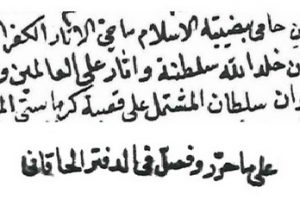 ين حامى بيضيته الاسلام ماحى الاثار الكفر
ن خلد الله سلطنة واثار على العالمين و
ان سلطان المشتمل على قصبة كرما ستى
على ما حرّر وفصّل فى الدفتر الخاقانى